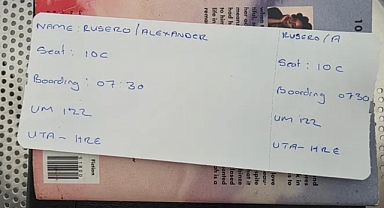 NAME: RUSERO/ALEXANDER
Seat: 10C
Boarding: 07:30
UM 122
UTA-HRE
RUSERO/A
Seat: 10C
Boarding 0730
UM 122
UTA-HRE
Fiction